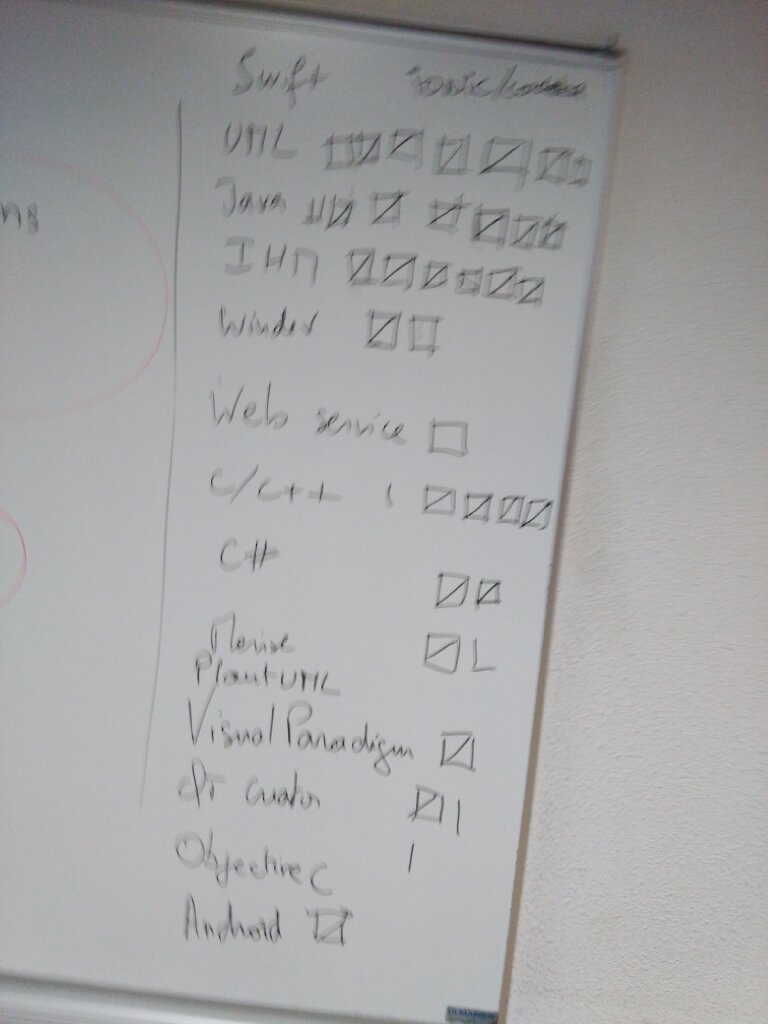 Swift ionic
UML
ns
Java
IHM
Windev
Web service
C/C++
C#
Merise
PlantUML
Visual Paradigm
QT Creator
Objective C
Android